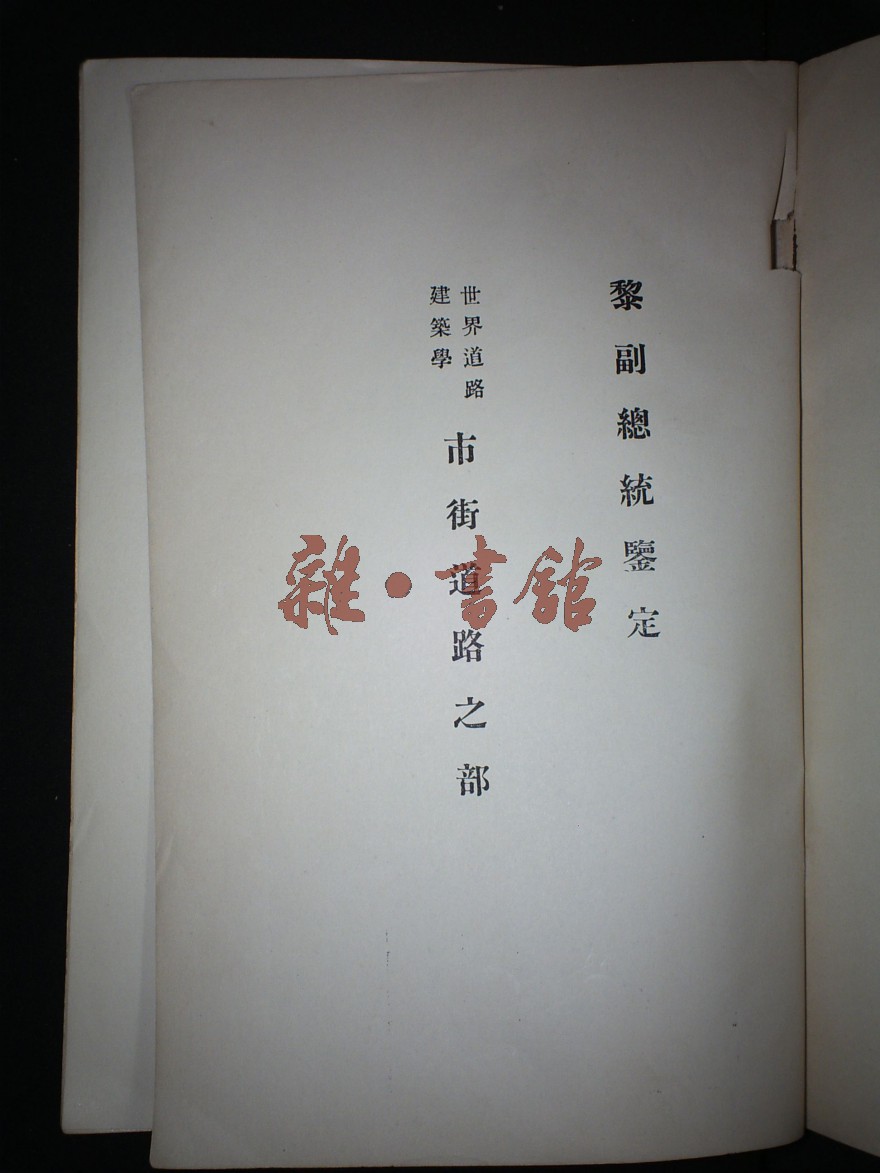 黎副總統鑒定
世界道路
建築學
市街道路之部
雜·書館